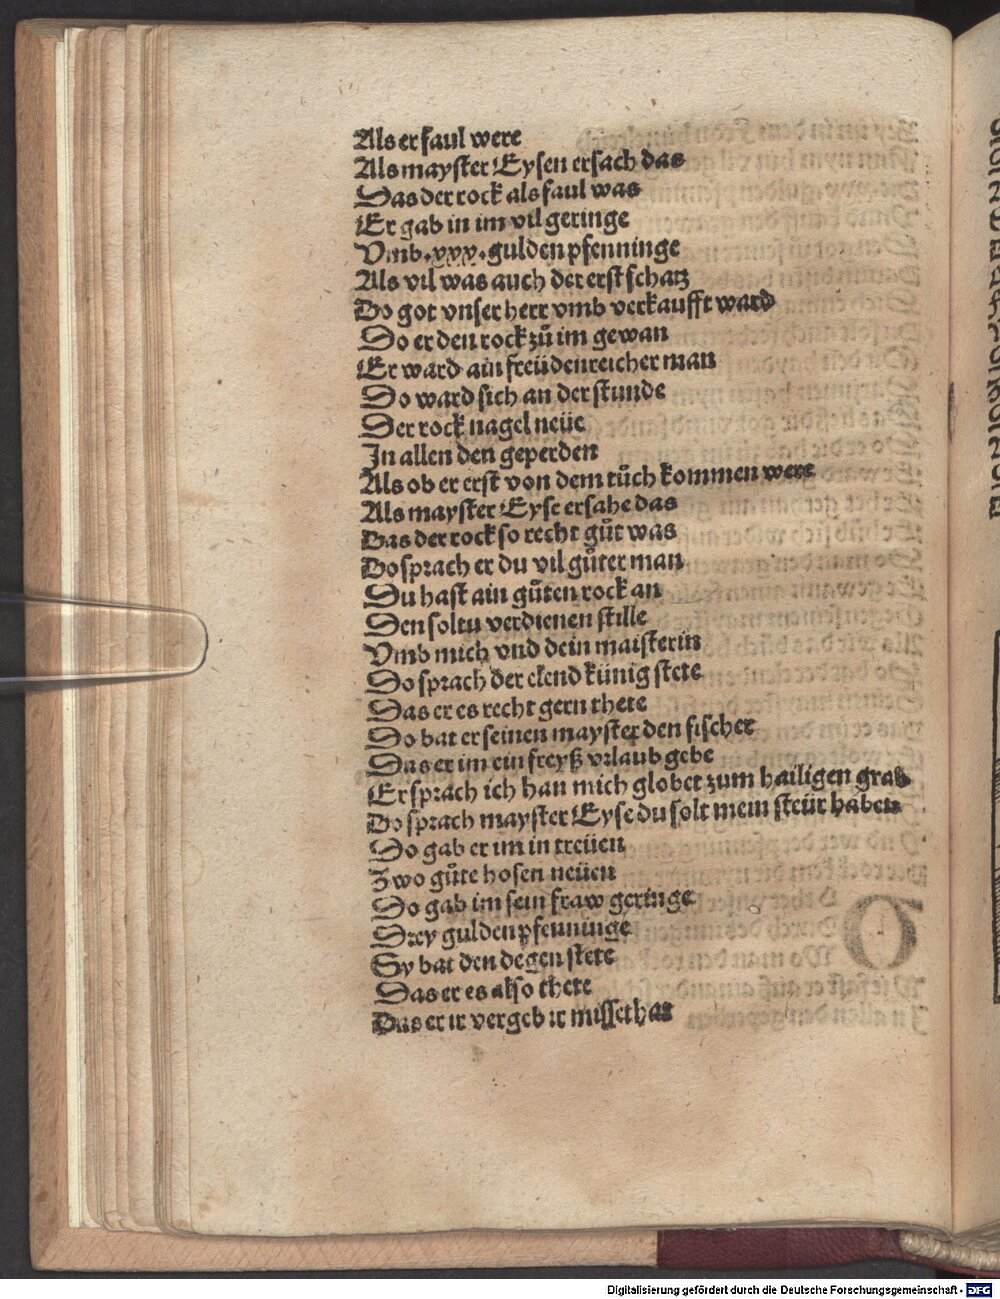 Als er faul were
Als mayster Eysen ersach das
Das der rock als faul was
Er gab in im vil geringe
Vmb .xxx. gulden pfenninge
Als vil was auch der erst schatz
Do got vnser herr vmb verkaufft ward
Do er den rock zů im gewan
Er ward ain freüdenreicher man
Do ward sich an der stunde
Der rock nagel neüe
In allen den geperden
Als ob er erst von dem tůch kommen were
Als mayster Eyse ersahe das
Das der rock so recht gůt was
Do sprach er du vil gůter man
Du hast ain gůten rock an
Den soltu verdienen stille
Vmb mich vnd dein maisterin
Do sprach der elend künig stete
Das er es recht gern thete
Do bat er seinen mayster den fischer
Das er im ein freyß vrlaub gebe
Er sprach ich han mich globet zum hailigen grab
Do sprach mayster Eyse du solt mein steür haben
Do gab er im in treüen
Zwo gůte hosen neüen
Do gab im sein fraw geringe
Drey gulden pfenninge
Sy bat den degen stete
Das er es also thete
Das er ir vergeb ir missethat
Digitalisierung gefördert durch die Deutsche Forschungsgemeinschaft - DFG